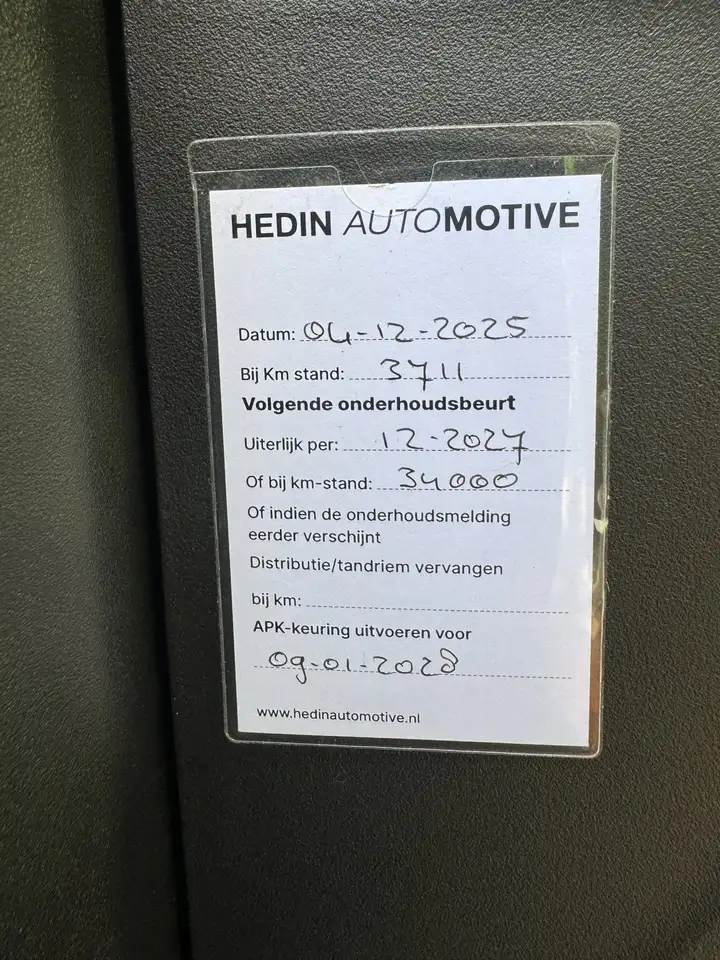 HEDIN AUTOMOTIVE
Datum: 04-12-2025
Bij Km stand: 3711
Volgende onderhoudsbeurt
Uiterlijk per: 12-2027
Of bij km-stand: 34000
Of indien de onderhoudsmelding
eerder verschijnt
Distributie/tandriem vervangen
bij km:
APK-keuring uitvoeren voor
09-01-2028
www.hedinautomotive.nl